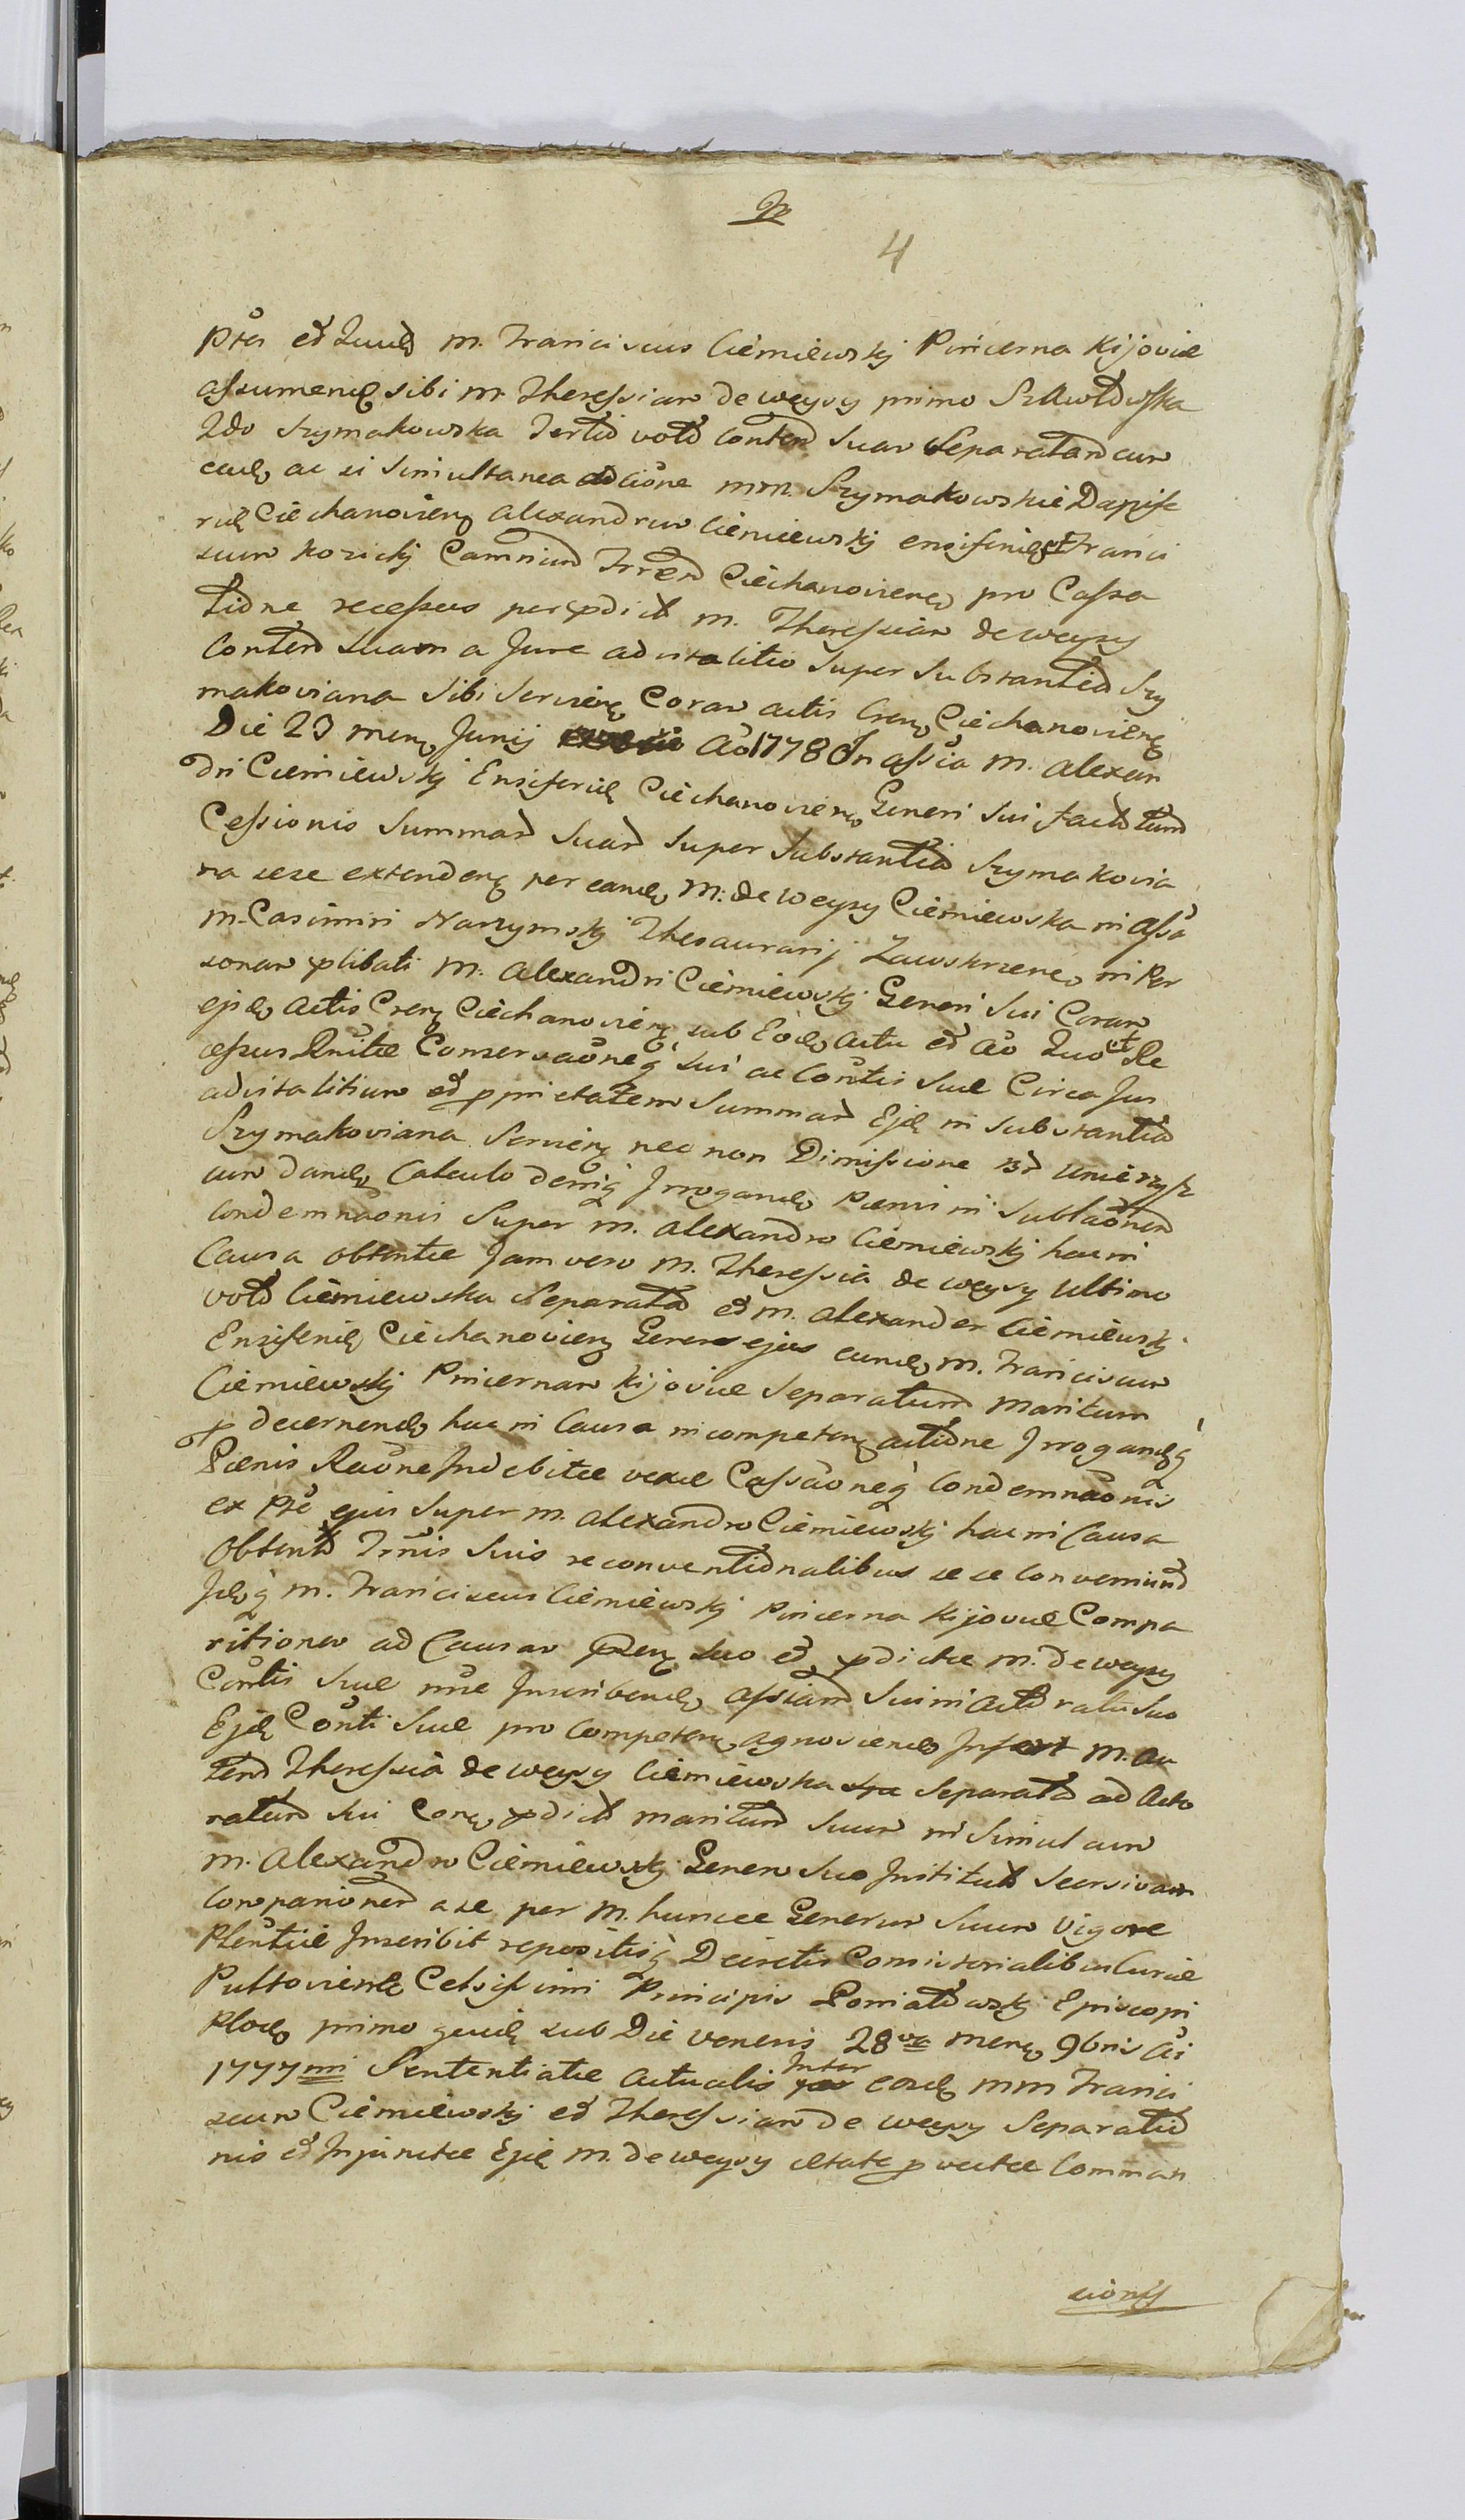 4
Ptes et Juues M. Franciscus Ciemiewskj Pincerna Kijoviæ
assumenes sibi M Theressiam de Weysy primo Szawłowska
2do Szymakowska Tertio voto Contem suam Separatam cum
eade, ac si simultanea accione MM. Szymakowskie Dapife
ræ Ciechanovien, Alexandrum Ciemiewskj Ensiferu et Franci
scum Kozickj Camrium Trren Ciechanoviene, pro Cassa
tione recessus per pdict M. Theressiam de Weysy
Contem Suam a Jure advitalitio super Substantia Szy
makoviana sibi servien Coram actis Cren Ciechanovien
Die 23 Mens Junij Ao 1778 In assia M. Alexan
dri Ciemiewskj Ensiferiæ Ciechanovien, Generi sui fact tum
Cessionis Summar Suar super Substantia Szymakovia
na sese extenden per eande, M. de Weysy Ciemiewska in Assa
M. Casimiri Narzymskj Thesaurarij Zawskrzene, in Per
sonam plibati M. Alexandri Ciemiewskj Generi sui Coram
ejsde Actis Cren Ciechanovien, sub Eode, Actu et Ao Quo et Re
cessus Unitæ Conservaoneq sui ac Contis suæ Circa Jus
advitalitium et pprietatem Summar Ejde in Substantia
Szymakoviana Servien nec non Dimissione Br
cum dande, Calculo deniq Irrogande, Pænis in Sublaonem
Condemnaonis Super M. Alexandro Ciemiewskj hac in
Causa obtentæ Jam vero M. Theressia de Weysy Ultimo
voto Ciemiewska Separata et M. Alexander Ciemiewskj
Ensiferiæ Ciechanovien Gener ejus eunde, M. Franciscum
Ciemiewskj Pincernam Kijoviæ Separatum Maritum
p decernende, hac in Causa incompeten actione Irrogandeq
Pænis Raone Indebitæ vexæ Cassaoneq Condemnaonis
ex Pte ejus Super M. Alexandro Ciemiewskj hac in Causa
Obtent Trmis suis reconventionalibus se se Conveniund
Jdeq M. Franciscus Ciemiewskj Pincerna Kijoviæ Compa
ritionem ad Causam Pzen suo et pdictæ M. de Weysy
Contis suæ nne Inscribende, assiam sui in Actoratu suo
Ejde Conti suæ pro Competen, agnoscende Infert M. au
tem Theressia de Weysy Ciemiewska Separata ad Acto
ratum sui Con, pdict Maritum suum in simul cum
M. Alexandro Ciemiewskj Genero Suo Institut Seorsivam
Comparionem a se per M. huncce Generum Suum Vigore
Plentiæ Inscribit repositisq Decretis Consistorialibus Curiæ
Pultovien Celsissimi Principis Poniatowskj Episcopi
Ploce, primo quide sub Die Veneris 28va Mens 9bris Ai
1777mi Sententiatæ Actualis Inter eosde MM Franci
scum Ciemiewskj et Theressiam de Weysy Separatio
nis et Injunctæ Ejde M. de Weysy ætate p vectæ Comman
cionis